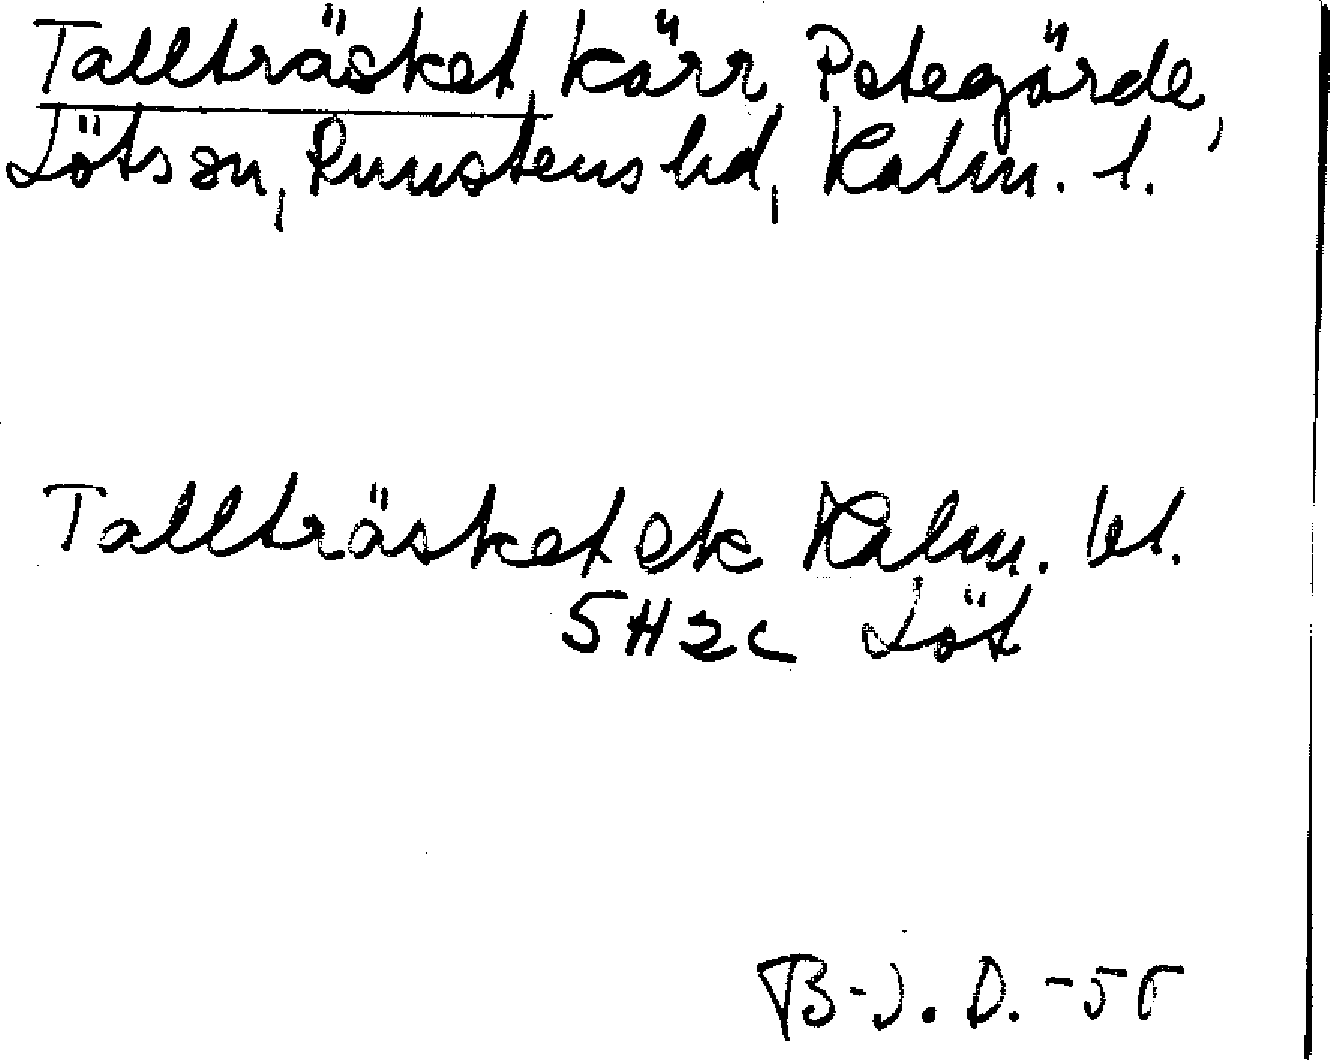 Tallträsket, kärr, Petegärde,
Löts sn, Runstens hd, Kalm. l.
Tallträsket ek Kalm. bl.
5H2c Löt
B-J. D. -55